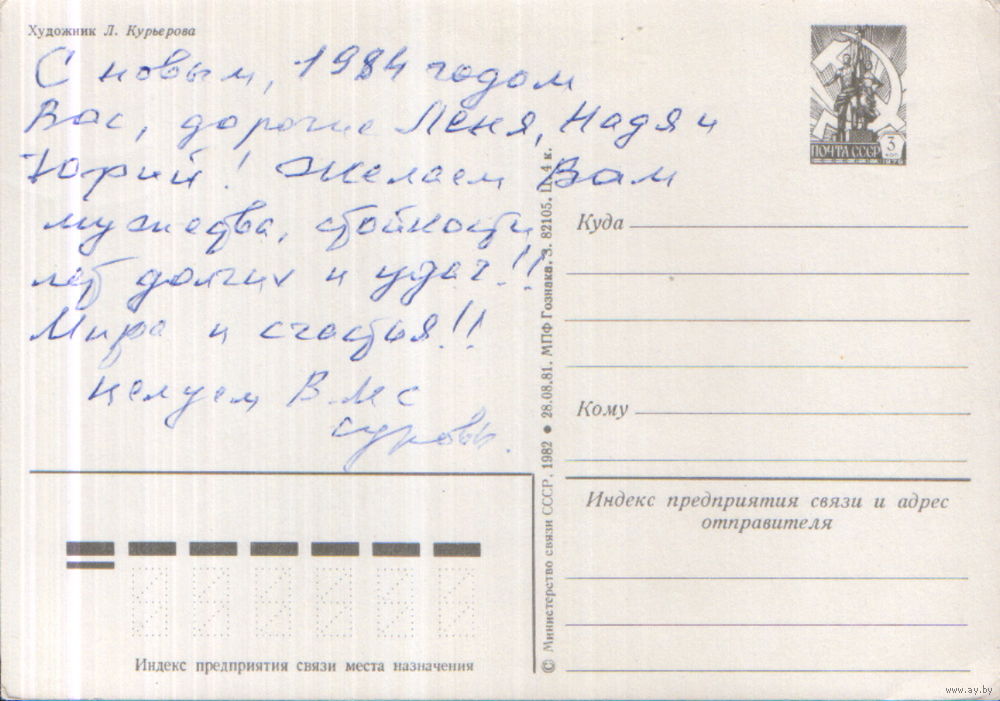 Художник Л. Курьерова
С новым, 1984 годом
Вас, дорогие Лёня, Надя и
Юрий! Желаем Вам
мужества, стойкости
лет долгих и удач!!
Мира и счастья!!
Целуем В М С
ПОЧТА СССР 3 КОП 1976
Куда
Кому
Индекс предприятия связи и адрес
отправителя
© Министерство связи СССР, 1982 ● 28.08.81. МПФ Гознака. З. 82105. Ц. 4 к.
Индекс предприятия связи места назначения
www.ay.by